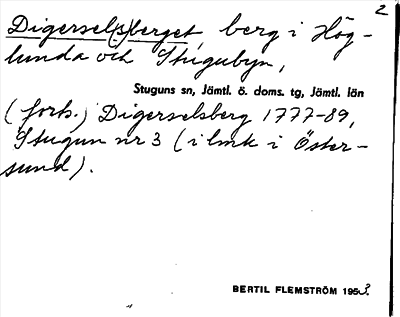 2
Digersel(s)berget, berg i Hög-
lunda och Stugubyn,
Stuguns sn, Jämtl. ö. doms. tg, Jämtl. län
(forts.) Digerselsberg 1777-89,
Stugun nr 3 (i lmk i Öster-
sund).
BERTIL FLEMSTRÖM 1953.